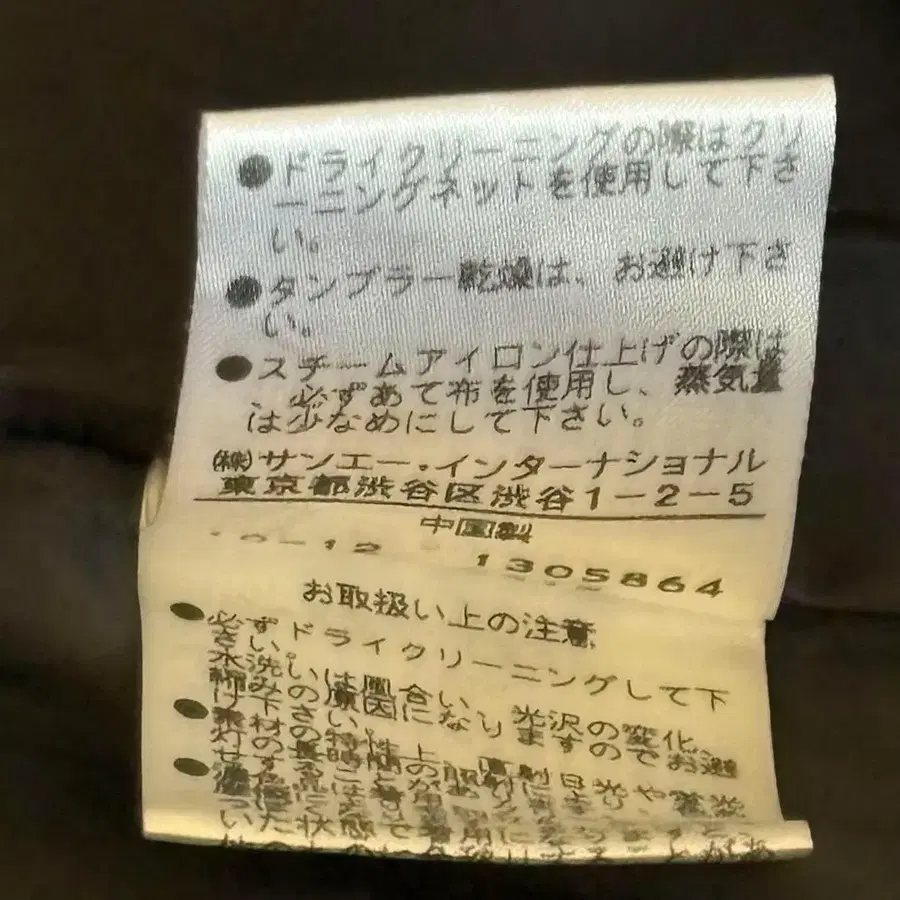 ●ドライクリーニングの際はクリ
ーニングネットを使用して下さ
い。
●タンブラー乾燥は、お避け下さ
い。
●スチームアイロン仕上げの際は
必ずあて布を使用し、蒸気量
は少なめにして下さい。
㈱サンエー・インターナショナル
東京都渋谷区渋谷1-2-5
中国製
-12 1305864
お取扱い上の注意
●必ずドライクリーニングして下
さい。
水洗いは風合い、光沢の変化、
縮みの原因になりますのでお避
け下さい。
●素材の特性上、直射日光や蛍光
灯の長時間の